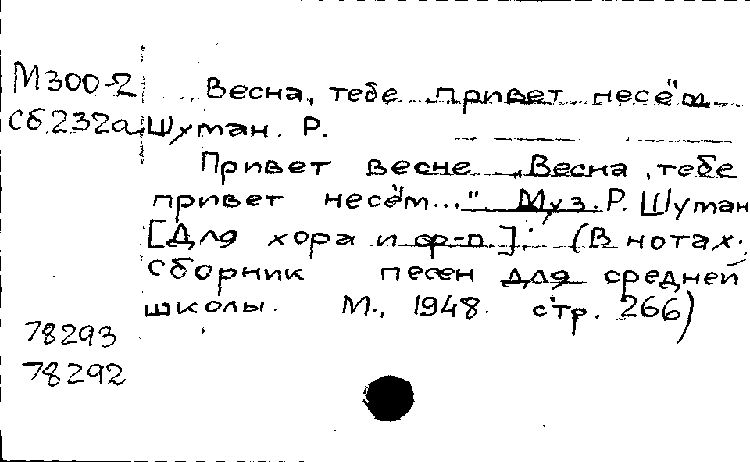 М300-2 Весна, тебе привет несём
Сб.232а Шуман. Р.
Привет весне „Весна, тебе
привет несём..." Муз. Р. Шуман
[Для хора и ф-п.]. (В нотах:
Сборник песен для средней
школы. М., 1948. стр. 266)
78293
78292